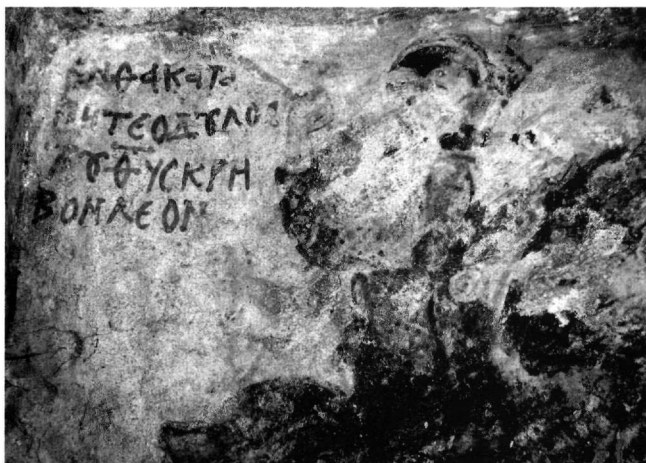 ΕΝΘΑΚΑΤΑ
ΚΗΤΕΟΔȢΛΟΣ
ΤȢΘΥCΚΡΗ
ΒΟΝΛΕΟΝ